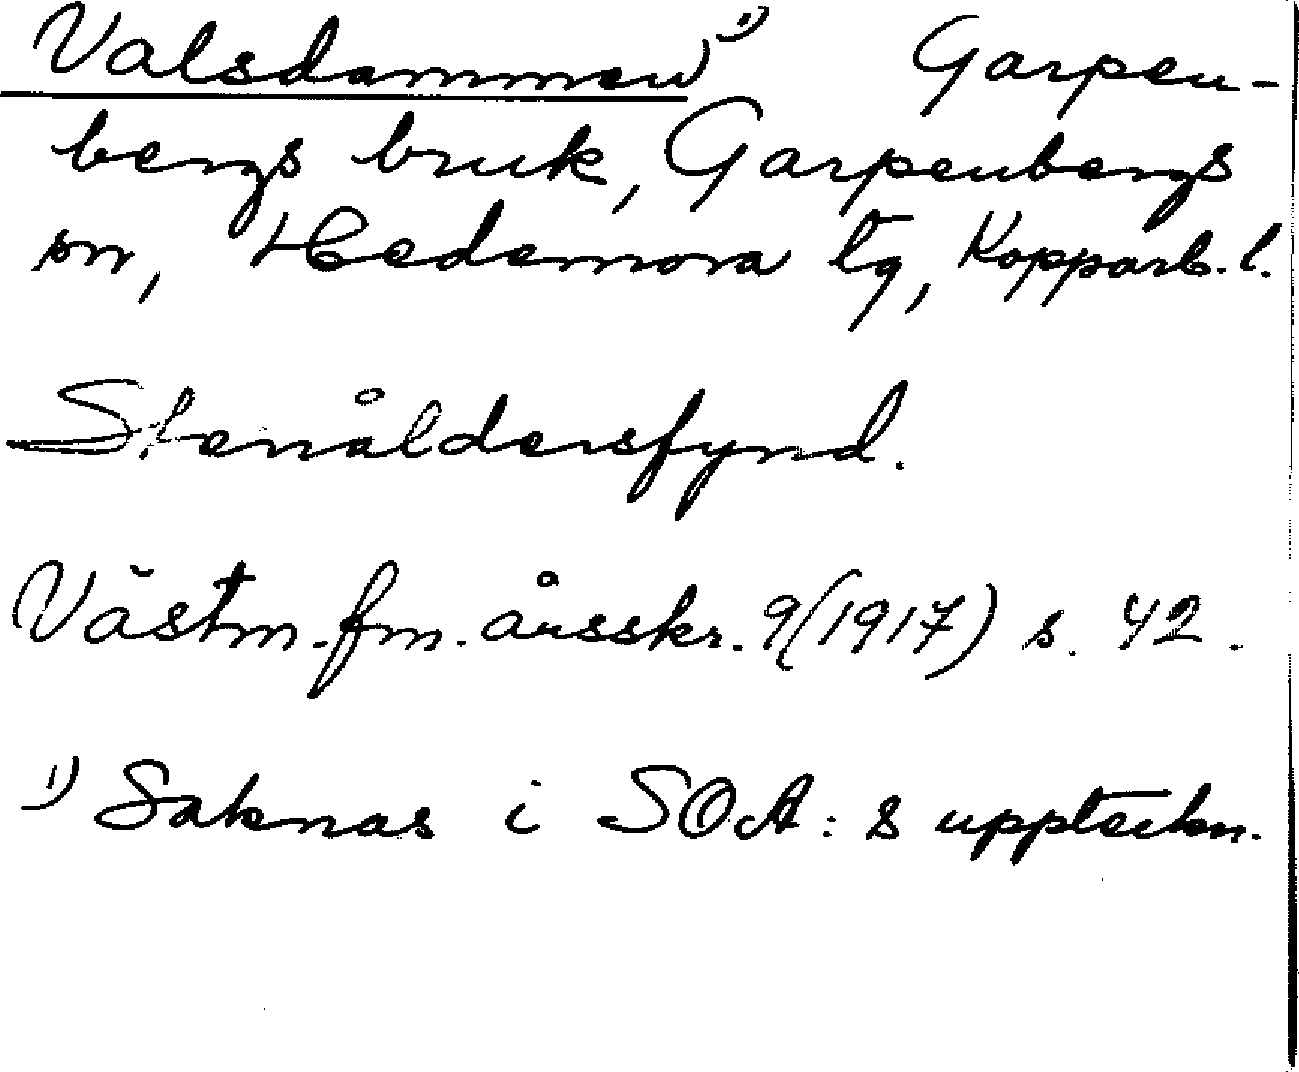 Valsdammen ¹⁾ Garpen-
bergs bruk, Garpenbergs
sn, Hedemora tg, Kopparb. l.
Stenåldersfynd.
Västm. fm. årsskr. 9 (1917) s. 42.
¹⁾ Saknas i SOA:s uppteckn.